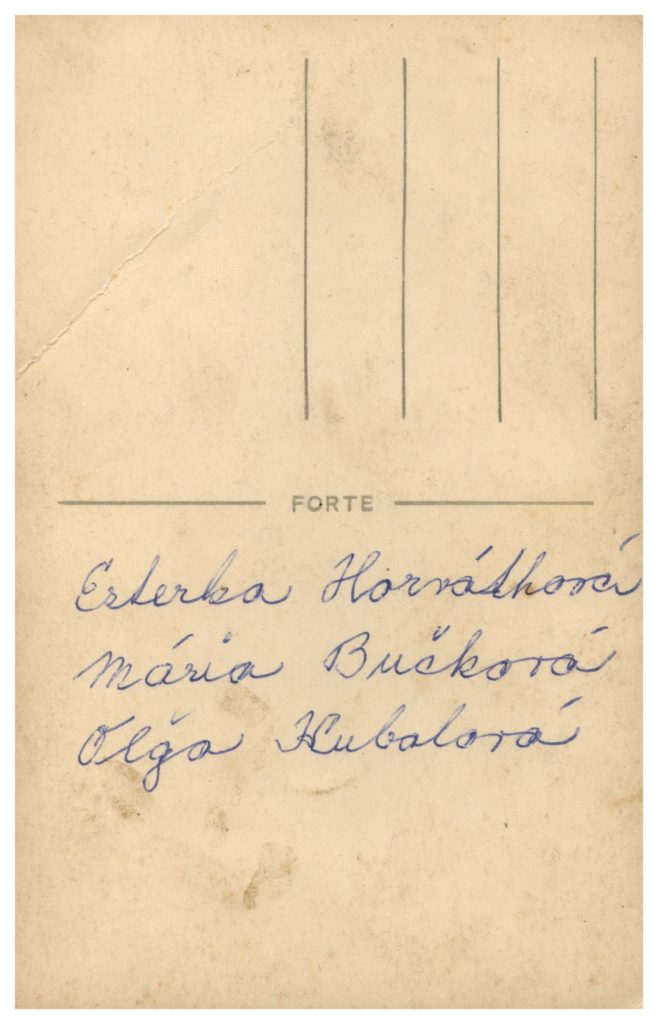 FORTE
Esterka Horváthová
Mária Bučková
Oľga Kubalová